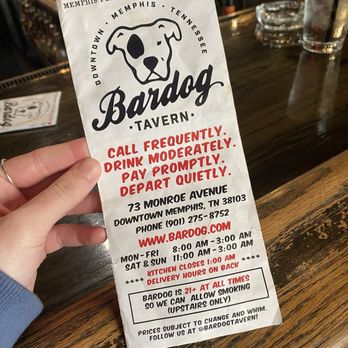 MEMPHIS
DOWNTOWN • MEMPHIS • TENNESSEE
Bardog
• TAVERN •
CALL FREQUENTLY.
DRINK MODERATELY.
PAY PROMPTLY.
DEPART QUIETLY.
73 MONROE AVENUE
DOWNTOWN MEMPHIS, TN 38103
PHONE (901) 275-8752
WWW.BARDOG.COM
MON - FRI 8:00 AM - 3:00 AM
SAT & SUN 11:00 AM - 3:00 AM
KITCHEN CLOSES 1:00 AM
**** DELIVERY HOURS ON BACK ****
BARDOG IS 21+ AT ALL TIMES
SO WE CAN ALLOW SMOKING
(UPSTAIRS ONLY)
PRICES SUBJECT TO CHANGE AND WHIM.
FOLLOW US AT @BARDOGTAVERN!
Bardog